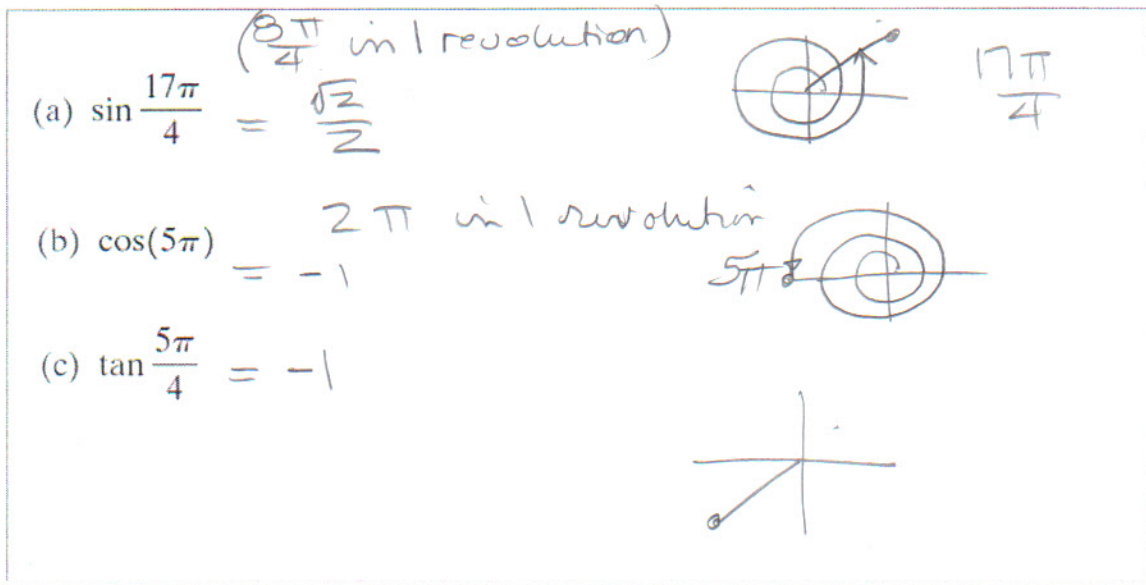 (8π/4 in 1 revolution)
(a) sin 17π/4 = √2/2
17π/4
2π in 1 revolution
(b) cos(5π) = -1
5π
(c) tan 5π/4 = -1